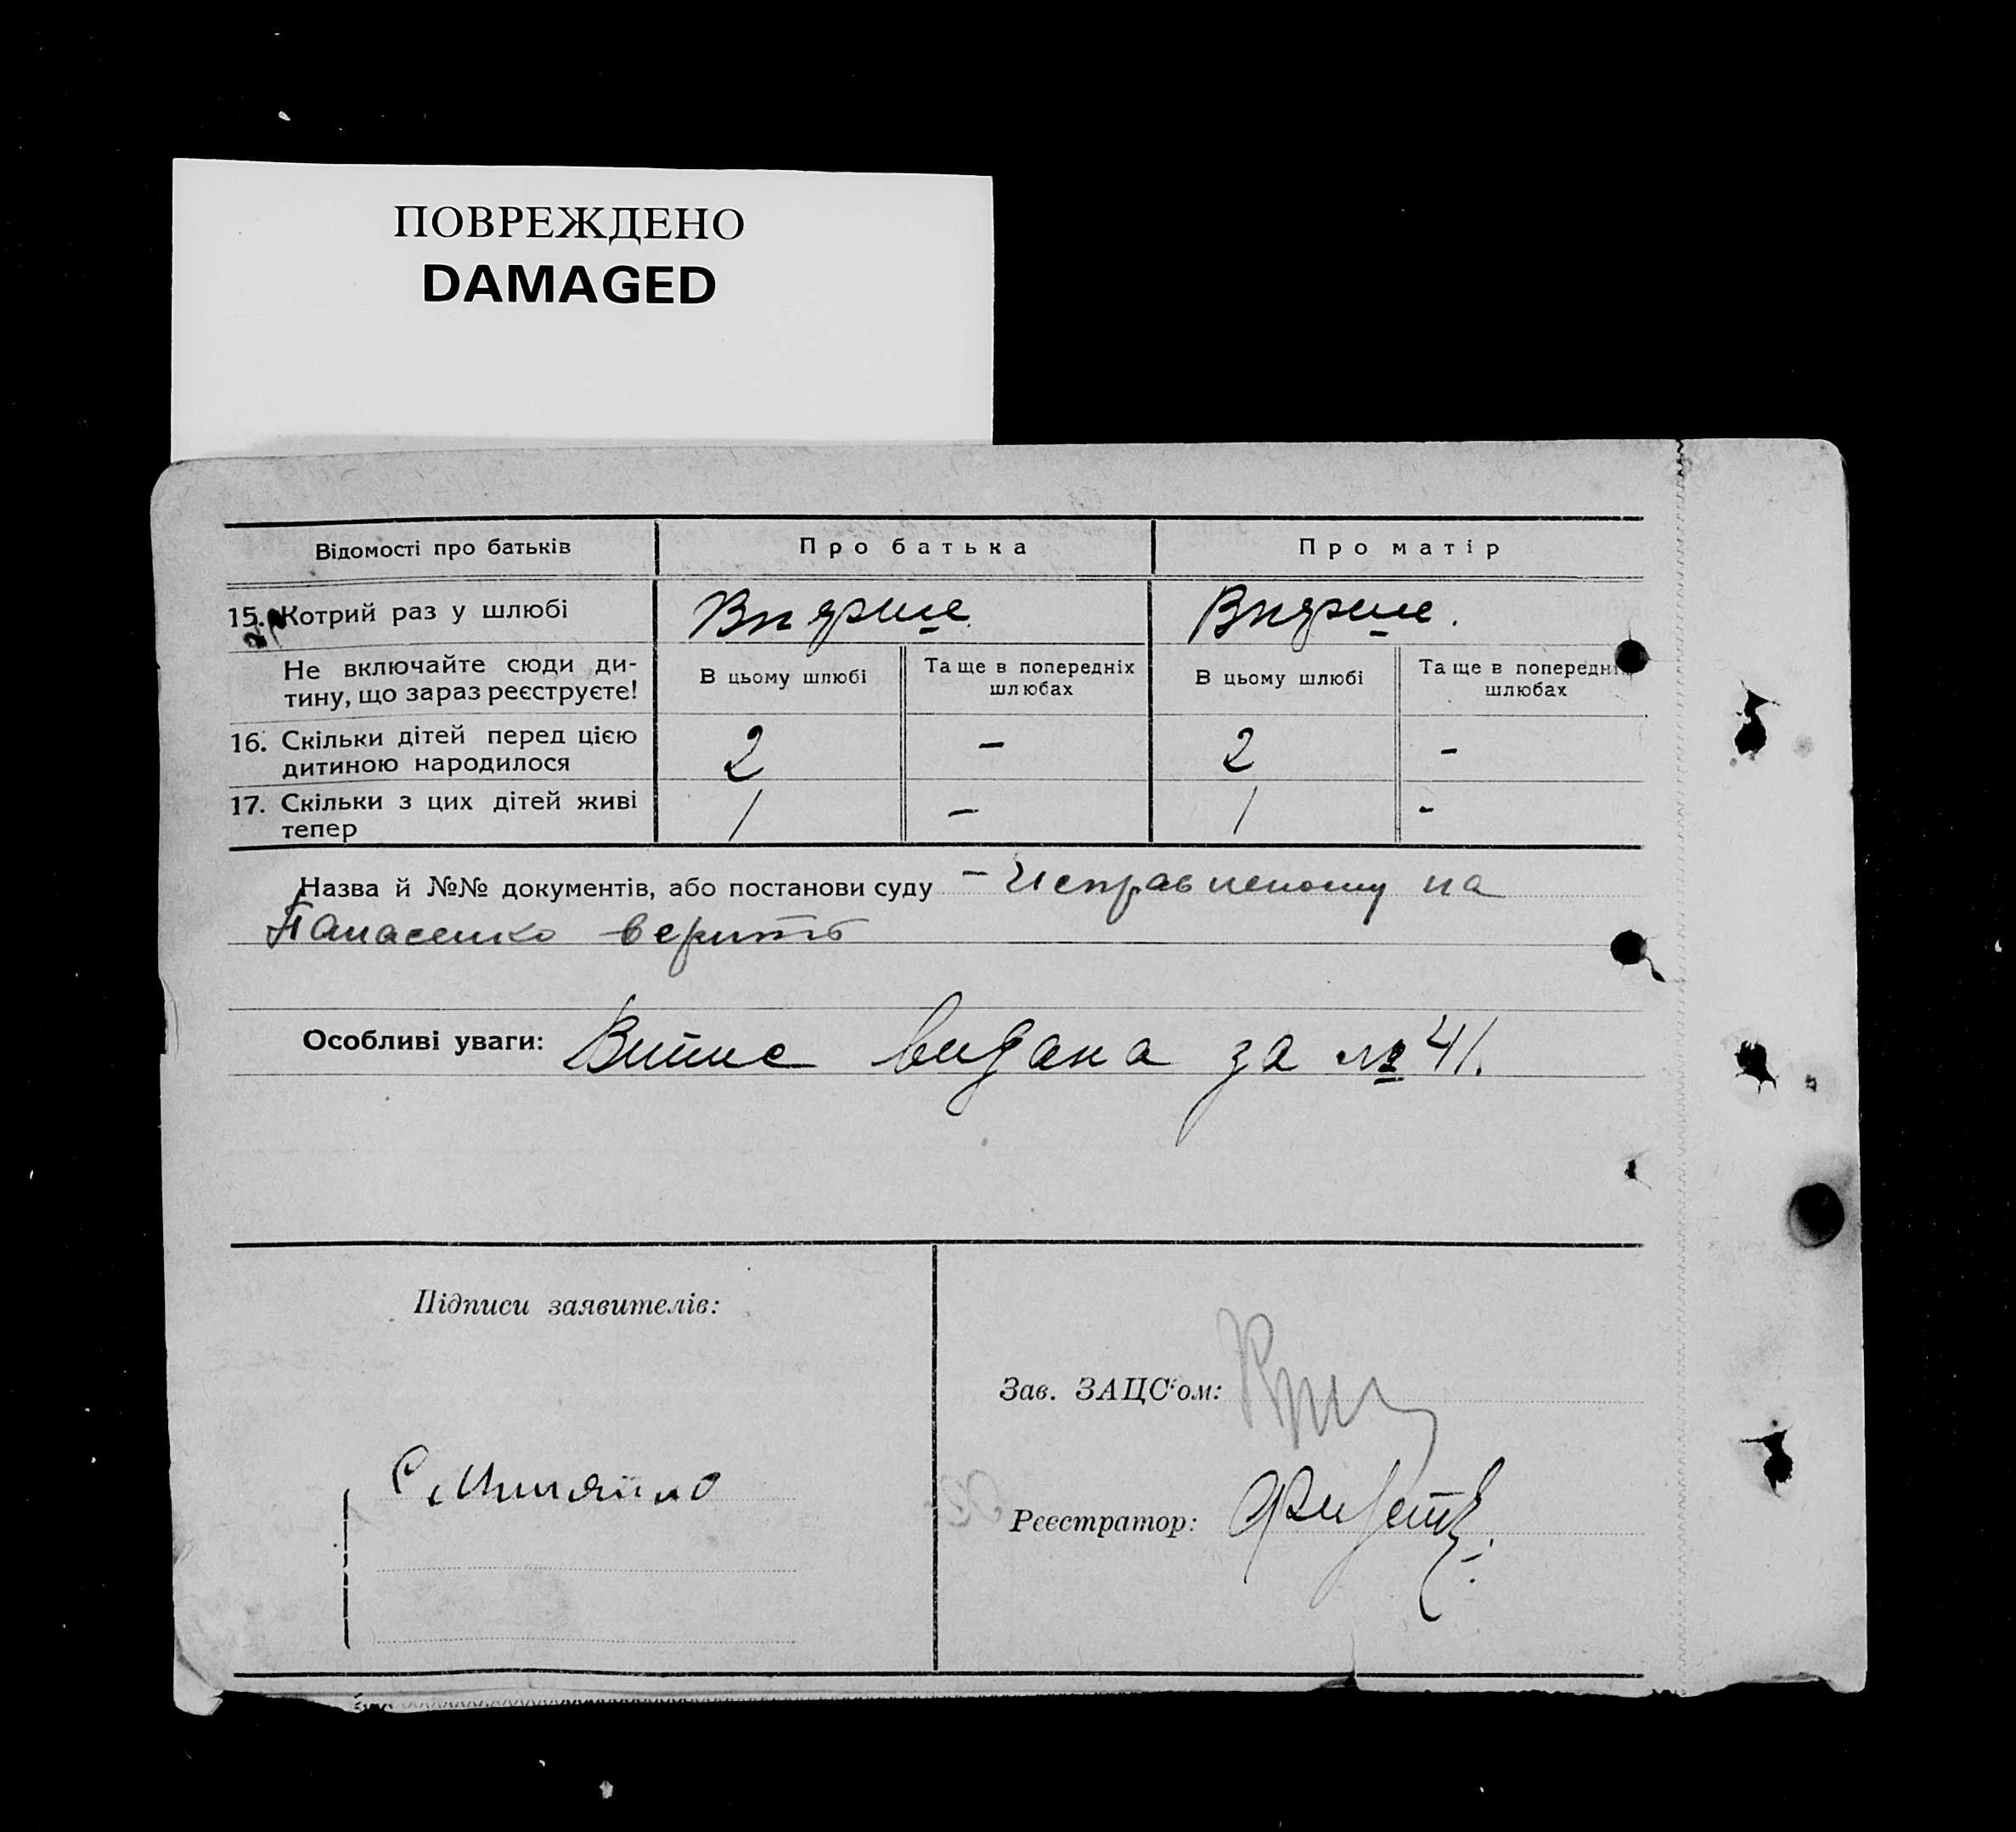 ПОВРЕЖДЕНО
DAMAGED
Відомості про батьків
Про батька
Про матір
15. Котрий раз у шлюбі
Вперше
Вперше.
Не включайте сюди ди-
тину, що зараз реєструєте!
В цьому шлюбі
Та ще в попередніх
шлюбах
В цьому шлюбі
Та ще в попередніх
шлюбах
16. Скільки дітей перед цією
дитиною народилося
2
–
2
–
17. Скільки з цих дітей живі
тепер
1
–
1
-
Назва й №№ документів, або постанови суду – Исправленому на
Панасенко верить
Особливі уваги: Випис видана за № 41.
Підписи заявителів:
Зав. ЗАЦС'ом:
Реєстратор: